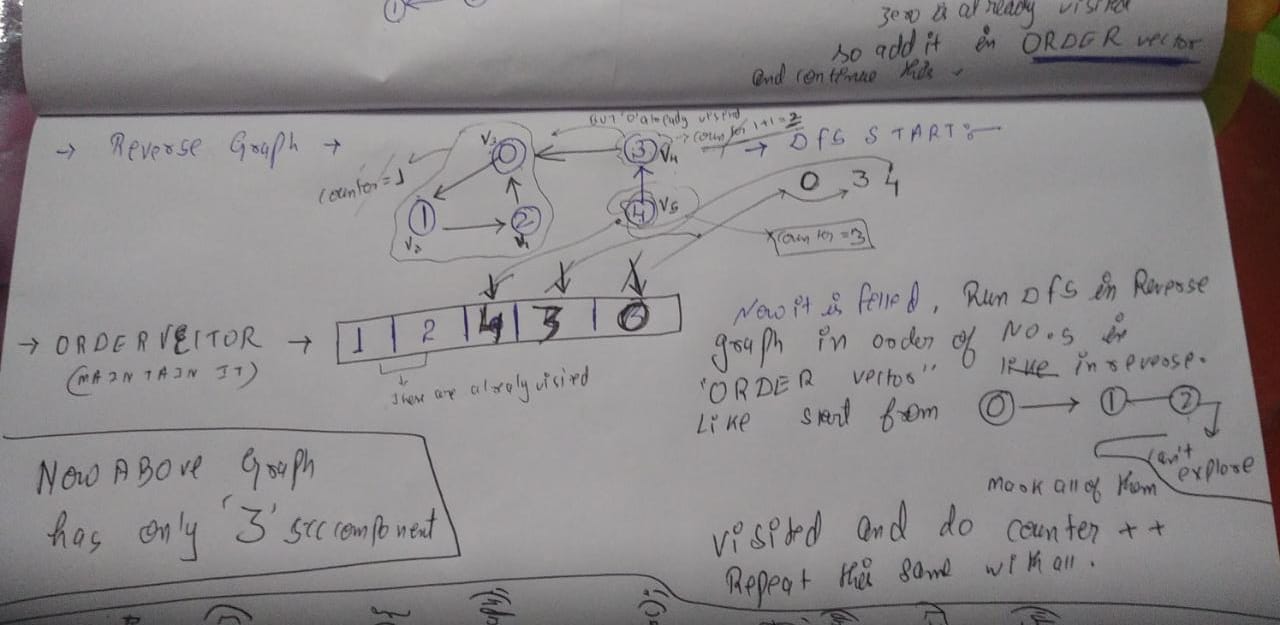 zero is already visited
so add it in ORDER vector
and continue this.
→ Reverse Graph →
But '0' already visited
counter 1+1=2
→ DFS STARTS
counter=1
0 3 4
V3 0
3 V4
1 V2
2 V1
4 V5
counter=3
→ ORDER VECTOR →
(MAINTAIN IT)
1 2 4 3 0
These are alrealy visired
Now it is filled, Run DFS in Reverse
graph in order of NO.s in
"ORDER vector" in reverse.
Like start from 0 → 1 — 2
can't explore
mark all of them
visited and do counter ++
Repeat this same with all.
Now ABOVE Graph
has only '3' scc component